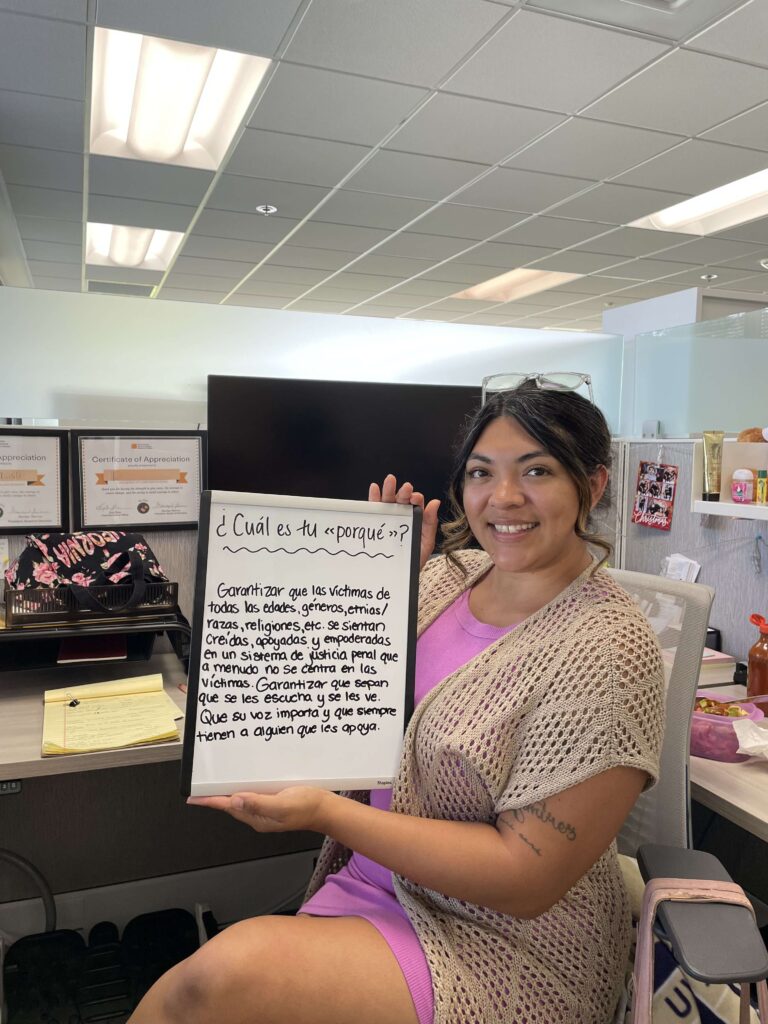 ¿Cuál es tu «porqué»?
Garantizar que las víctimas de
todas las edades, géneros, etnias/
razas, religiones, etc. se sientan
creídas, apoyadas y empoderadas
en un sistema de justicia penal que
a menudo no se centra en las
víctimas. Garantizar que sepan
que se les escucha y se les ve.
Que su voz importa y que siempre
tienen a alguien que les apoya.
Certificate of Appreciation
Christmas